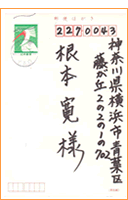 郵便はがき
2270043
神奈川県横浜市青葉区
藤が丘2の2の1の702
根本寛様